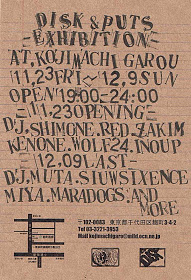 DISK & PUTS
-EXHIBITION-
AT.KOJIMACHI GAROU
11,23FRI~12,9SUN
OPEN 19:00-24:00
-11,23 OPENING-
DJ.SHIMONE.RED.ZAKIM
KENONE.WOLF24.INOUP
-12,09LAST-
DJ.MUTA.SIUWSIXENCE
MIYA.MARADOGS.AND
MORE
〒102-0083 東京都千代田区麹町3-4-2
Tel 03-3221-3953
Mail kojimachigaro@mild.ocn.ne.jp